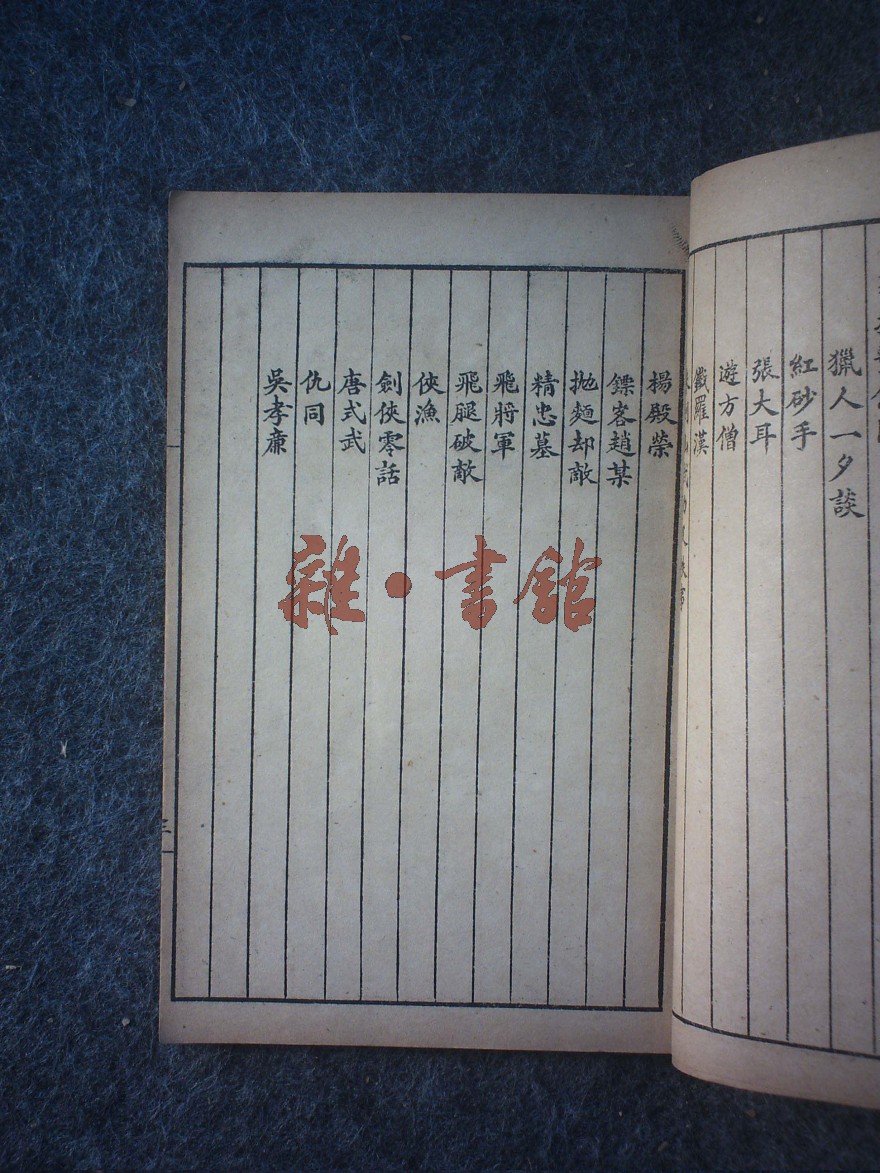 獵人一夕談
紅砂手
張大耳
遊方僧
鐵羅漢
楊殿榮
鏢客趙某
拋麵却敵
精忠墓
飛將軍
飛腿破敵
俠漁
劍俠零話
唐式武
仇同
吳孝廉
三
雜·書館